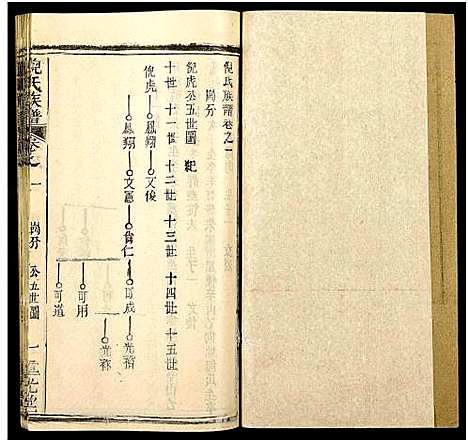 倪氏族譜卷之一
崗分
倪虎公五世圖
十世 十一世 十二世 十三世 十四世 十五世
倪虎 鳳翔 文俊
鳳翔 文蕙 肯仁 可成 光裕
光裕
可用
可道
倪氏族譜 卷之一 崗分 公五世圖 一